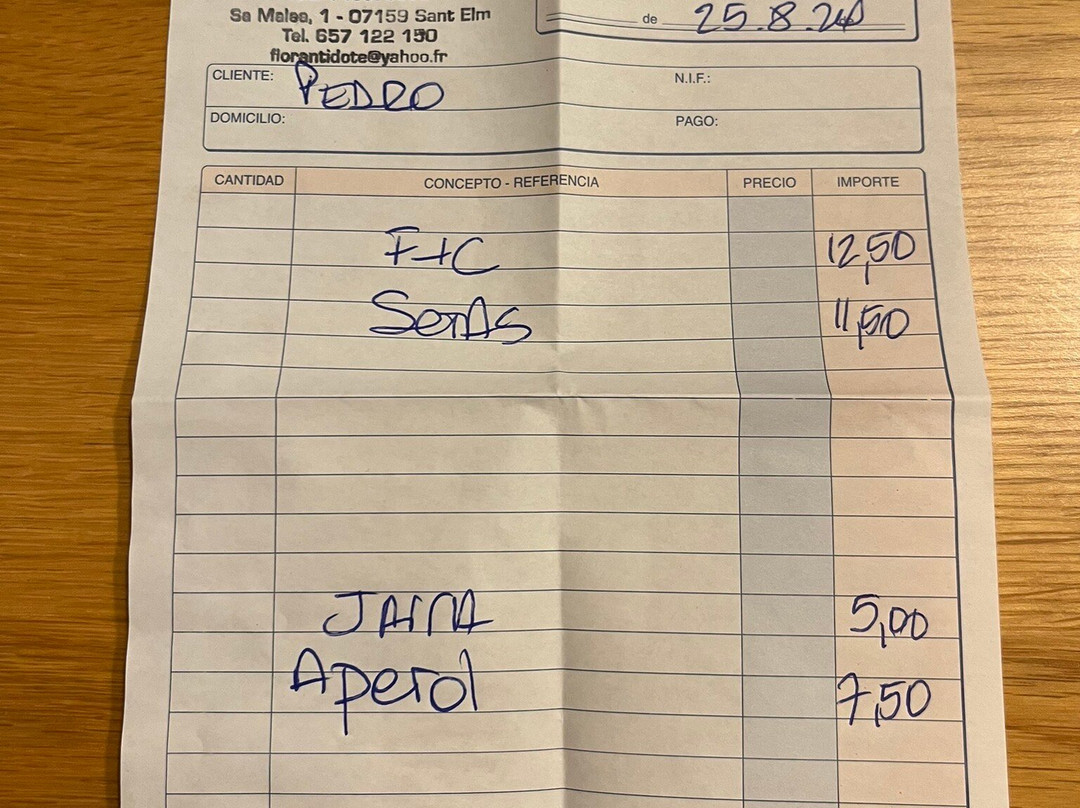 Sa Malea, 1 - 07159 Sant Elm
Tel. 657 122 150
florantidote@yahoo.fr
de 25.8.24
CLIENTE: PEDRO N.I.F.:
DOMICILIO: PAGO:
CANTIDAD CONCEPTO - REFERENCIA PRECIO IMPORTE
F+C 12,50
11,50
JARRA 5,00
Aperol 7,50